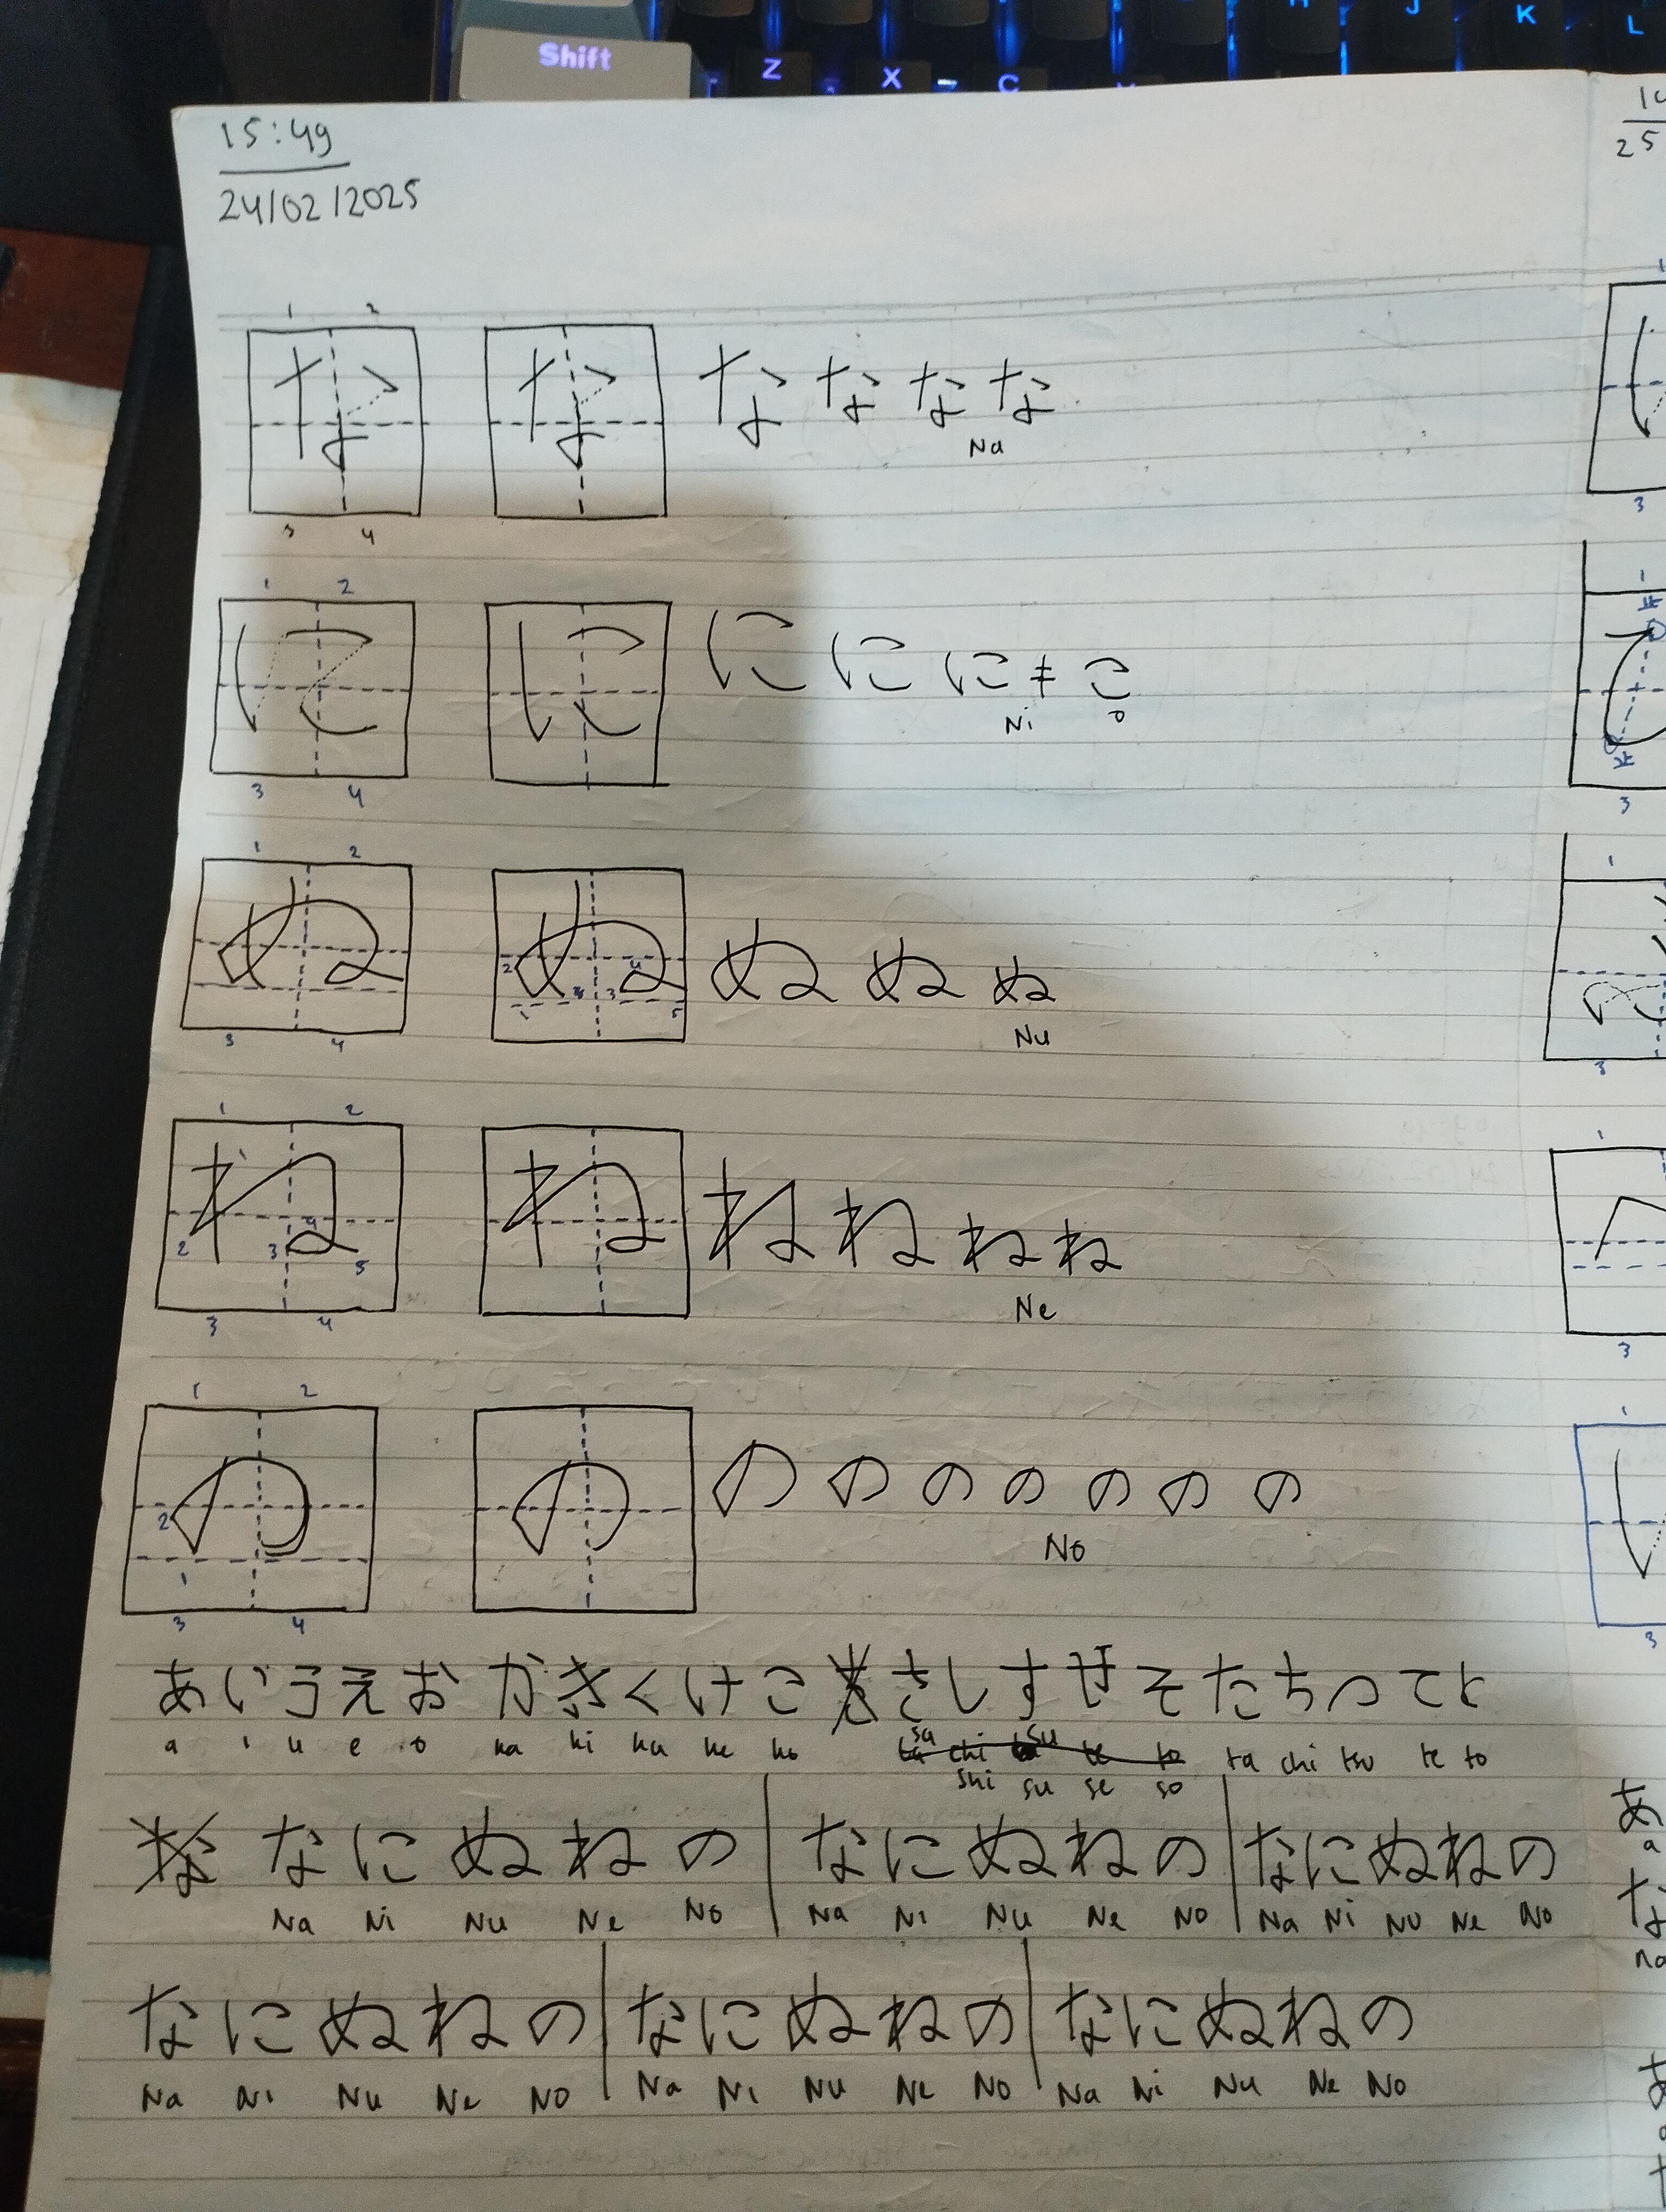 Shift Z X C H J K L
15:49
24/02/2025
1 2
な な な な な な
Na
3 4
1 2
に に に に に ≠ こ
Ni o
3 4
1 2
ぬ ぬ ぬ ぬ ぬ
Nu
3 4
1 2
ね ね ね ね ね ね
2 3 4 5
Ne
3 4
1 2
の の の の の の の の の
2
No
1
3 4
あ い う え お か き く け こ さ し す せ そ た ち つ て と
a i u e o ka ki ku ke ko sa chi su te to ta chi tsu te to
shi su se so
な に ぬ ね の | な に ぬ ね の | な に ぬ ね の
Na Ni Nu Ne No | Na Ni Nu Ne No | Na Ni Nu Ne No
な に ぬ ね の | な に ぬ ね の | な に ぬ ね の
Na Ni Nu Ne No | Na Ni Nu Ne No | Na Ni Nu Ne No